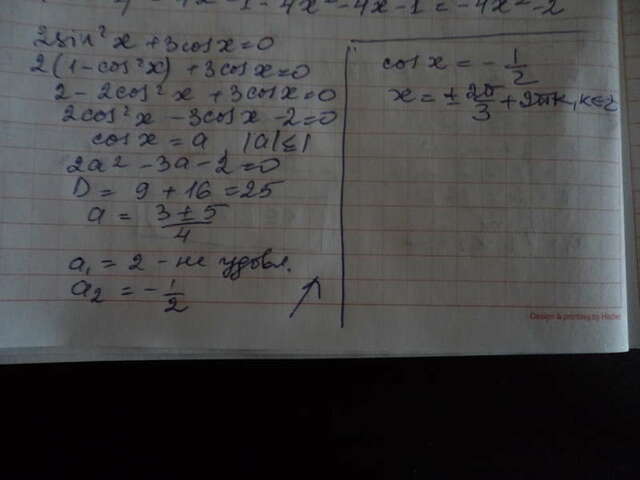 - 4x - 1 - 4x² - 4x - 1 = -4x² - 2
2sin²x + 3cosx = 0
2(1 - cos²x) + 3cosx = 0
2 - 2cos²x + 3cosx = 0
2cos²x - 3cosx - 2 = 0
cosx = a, |a| ≤ 1
2a² - 3a - 2 = 0
D = 9 + 16 = 25
a = (3 ± 5)/4
a₁ = 2 - не удовл.
a₂ = -1/2
cosx = -1/2
x = ± 2π/3 + 2πk, k ∈ Z
Design & printing by Hatber